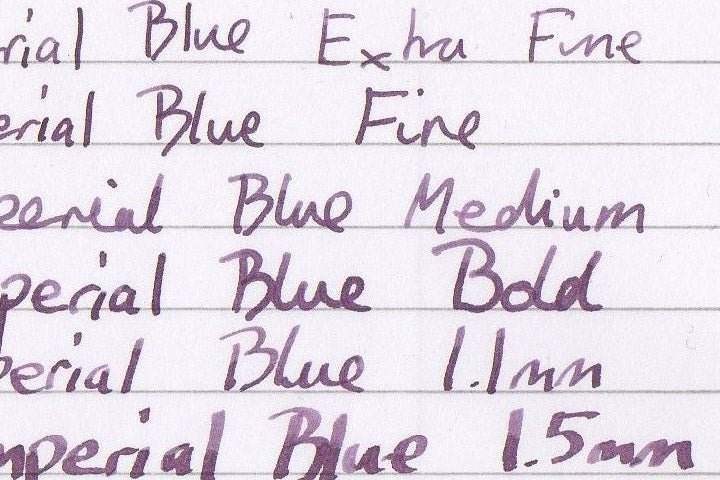 rial Blue Extra Fine
erial Blue Fine
perial Blue Medium
perial Blue Bold
perial Blue 1.1mm
mperial Blue 1.5mm